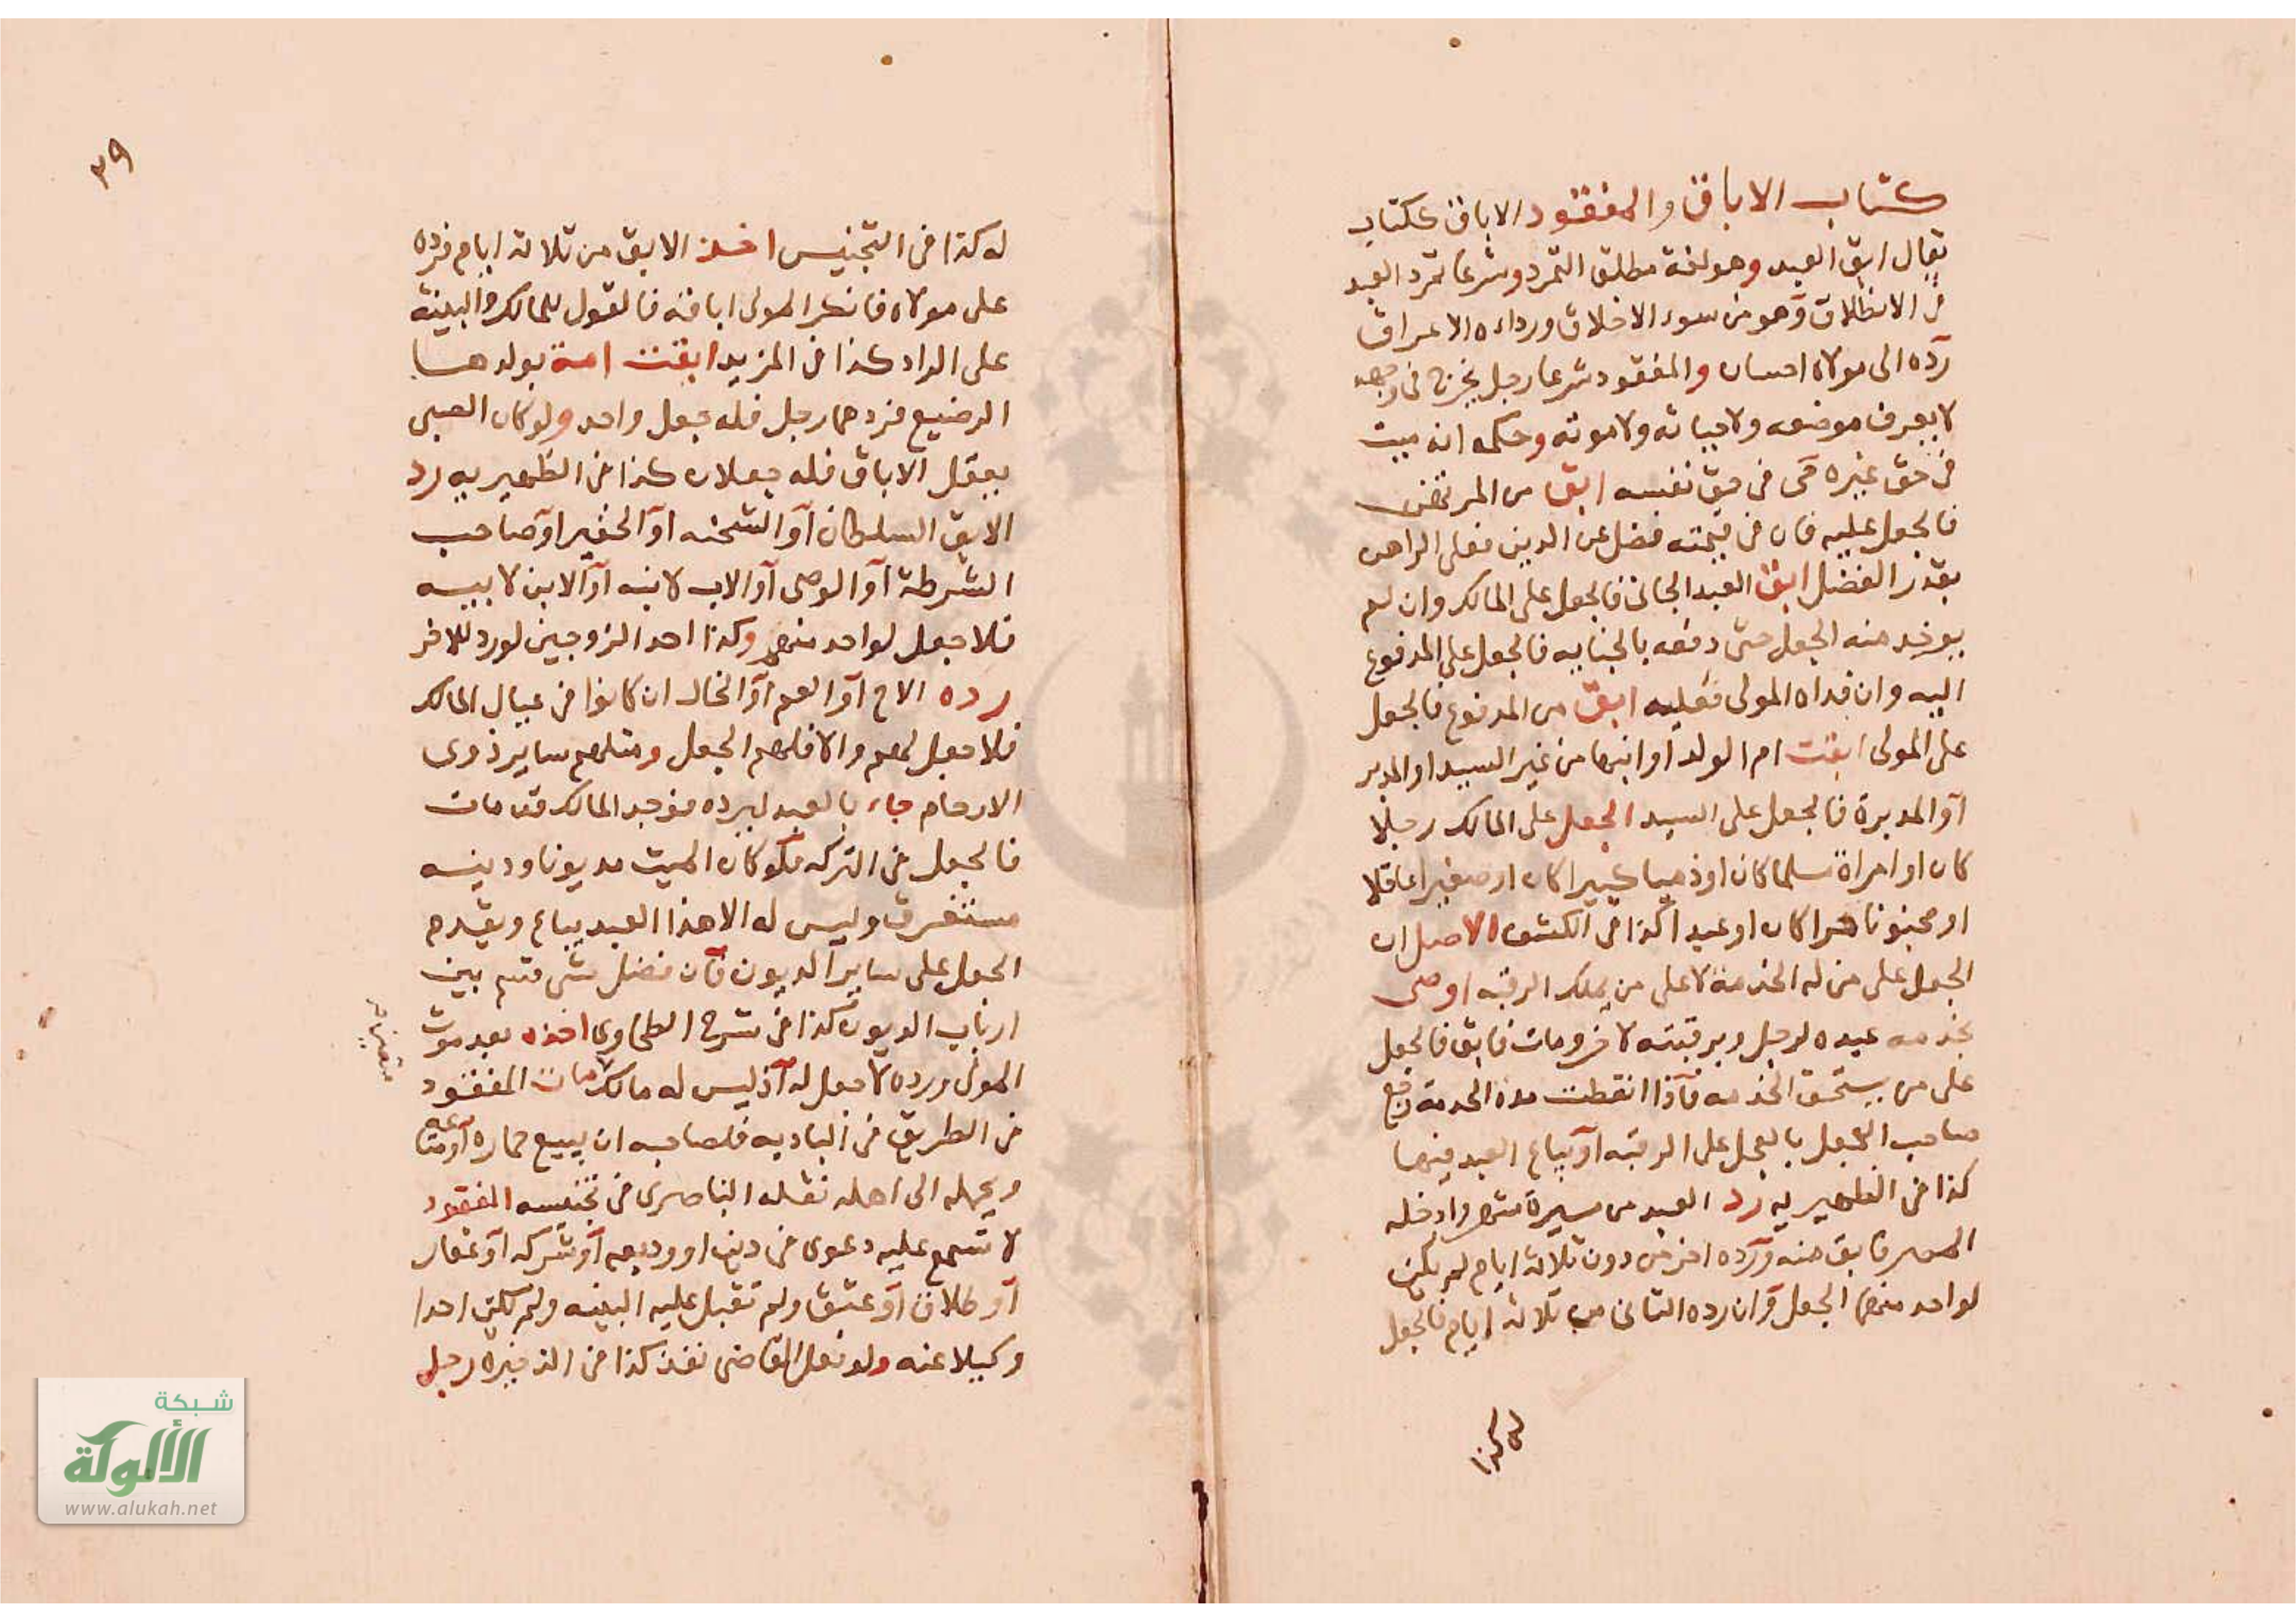 كتاب الاباق والمفقود الاباق ككتاب
يقال ابق العبد وهو لغة مطلق التمرد وشرعا تمرد العبد
في الانطلاق وهو من سوء الاخلاق ورداءه الاعراق
رده الى مولاه احسان والمفقود شرعا رجل يخرج في وجهه
لا يعرف موضعه ولا حياته ولا موته وحكمه انه ميت
في حق غيره حي في حق نفسه ابق من المرتهن
فالجعل عليه فان في قيمته فضل عن الدين فعلى الراهن
بقدر الفضل ابق العبد الجاني فالجعل على المالك وان لم
يوخذ منه الجعل حتى دفعه بالجنايه فالجعل على المدفوع
اليه وان فداه المولى فعليه ابق من المدفوع فالجعل
على المولى ابقت ام الولد او ابنها من غير السيد او المدبر
او المدبرة فالجعل على السيد الجعل على المالك رجلا
كان او امراة مسلما كان او ذميا كبيرا كان او صغيرا عاقلا
او مجنونا حرا كان او عبدا كذا في الكشف الاصل ان
الجعل على من له الخدمة لا على من يملك الرقبه اوصى
بخدمه عبده لرجل وبرقبته لاخر ومات فابق فالجعل
على من يستحق الخدمه فاذا انقطت مدة الخدمة رجع
صاحب الجعل بالجعل على الرقبه او يباع العبد فيها
كذا في الظهيريه رد العبد من مسيرة شهر وادخله
المصر فابق منه ورده اخر من دون ثلاثة ايام لم يكن
لواحد منهما الجعل وان رده الثاني من ثلاثة ايام فالجعل
له كذا
٣٩
له كذا في التجنيس اخذ الابق من ثلاثة ايام فرده
على مولاه فانكر المولى اباقه فالقول للمالك والبينة
على الراد كذا في المزيد ابقت امة بولدها
الرضيع فردهما رجل فله جعل واحد ولو كان الصبي
يعقل الاباق فله جعلان كذا في الظهيريه رد
الابق السلطان او الشحنه او الخفير او صاحب
الشرطة او الوصي او الاب لابنه او الابن لابيه
فلا جعل لواحد منهم وكذا احد الزوجين لو رد للاخر
رده الاخ او العم او الخال ان كانوا في عيال المالك
فلا جعل لهم والا فلهم الجعل ومثلهم ساير ذوى
الارحام جاء بالعبد ليرده فوجد المالك قد مات
فالجعل في التركه فلو كان الميت مديونا ودينه
مستغرق وليس له الا هذا العبد يباع ويقدم
الجعل على ساير الديون فان فضل شي قسم بين
ارباب الديون كذا في شرح الطحاوي اخذه بعد موت
المولى ورده لا جعل له اذ ليس له مالك مات المفقود
في الطريق في الباديه فلصاحبه ان يبيع حماره او متاعه
ويحمله الى اهله نقله الناصري في تجنيسه المفقود
لا تسمع عليه دعوى في دين او وديعه او شركه او عقار
او طلاق او عتق ولم تقبل عليه البينه ولم يكن احدا
وكيلا عنه ولو فعل القاضى نفذ كذا في الذخيره رجل
شبكة
الألوكة
www.alukah.net